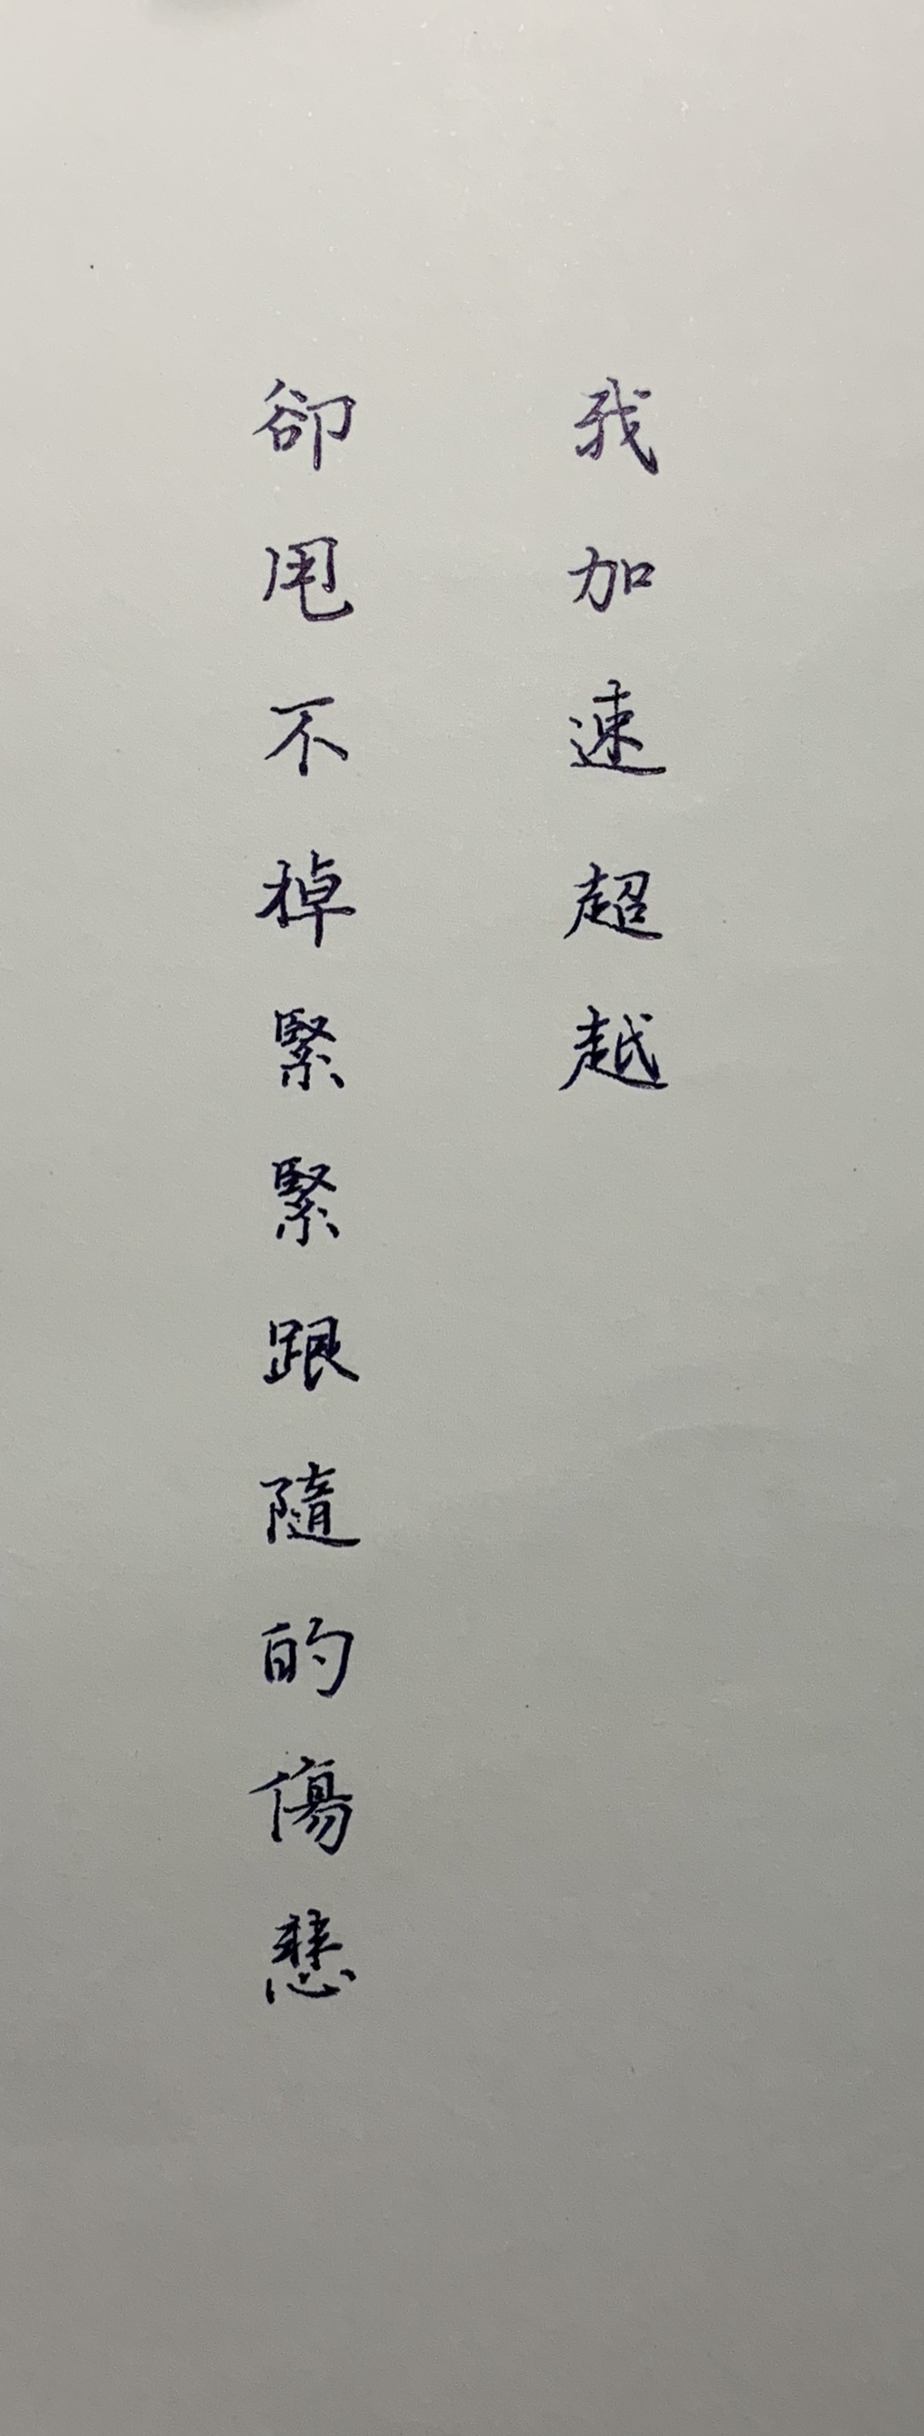 我加速超越
卻甩不掉緊緊跟隨的傷悲